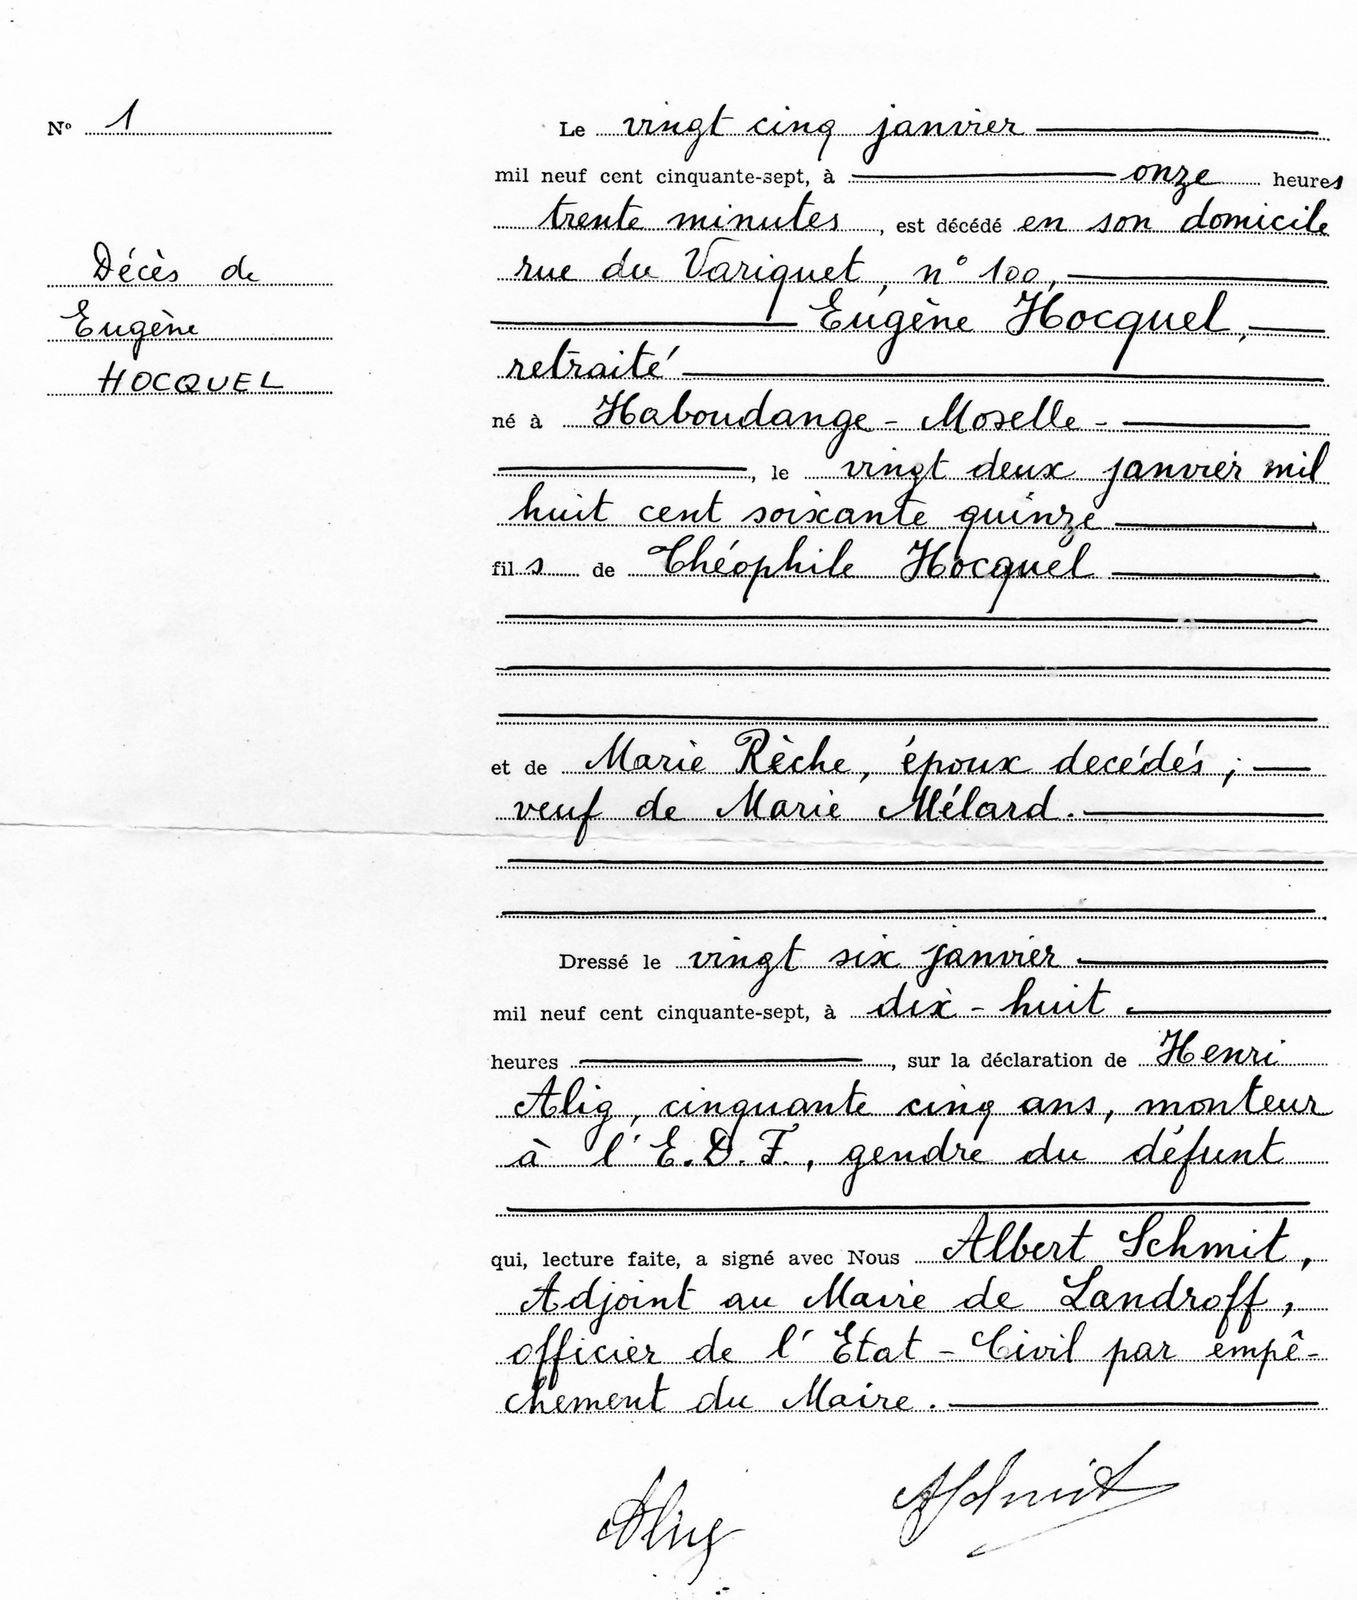 N° 1
Décès de
Eugène
HOCQUEL
Le vingt cinq janvier
mil neuf cent cinquante-sept, à onze heures
trente minutes, est décédé en son domicile
rue du Variquet, n° 100,
Eugène Hocquel,
retraité
né à Haboudange - Moselle -
, le vingt deux janvier mil
huit cent soixante quinze
fils de Théophile Hocquel
et de Marie Rèche, époux decédés;
veuf de Marie Mélard.
Dressé le vingt six janvier
mil neuf cent cinquante-sept, à dix-huit
heures , sur la déclaration de Henri
Alig, cinquante cinq ans, monteur
à l'E.D.F., gendre du défunt
qui, lecture faite, a signé avec Nous Albert Schmit,
Adjoint au Maire de Landroff,
officier de l'Etat-Civil par empê-
chement du Maire.
Alig ASchmit